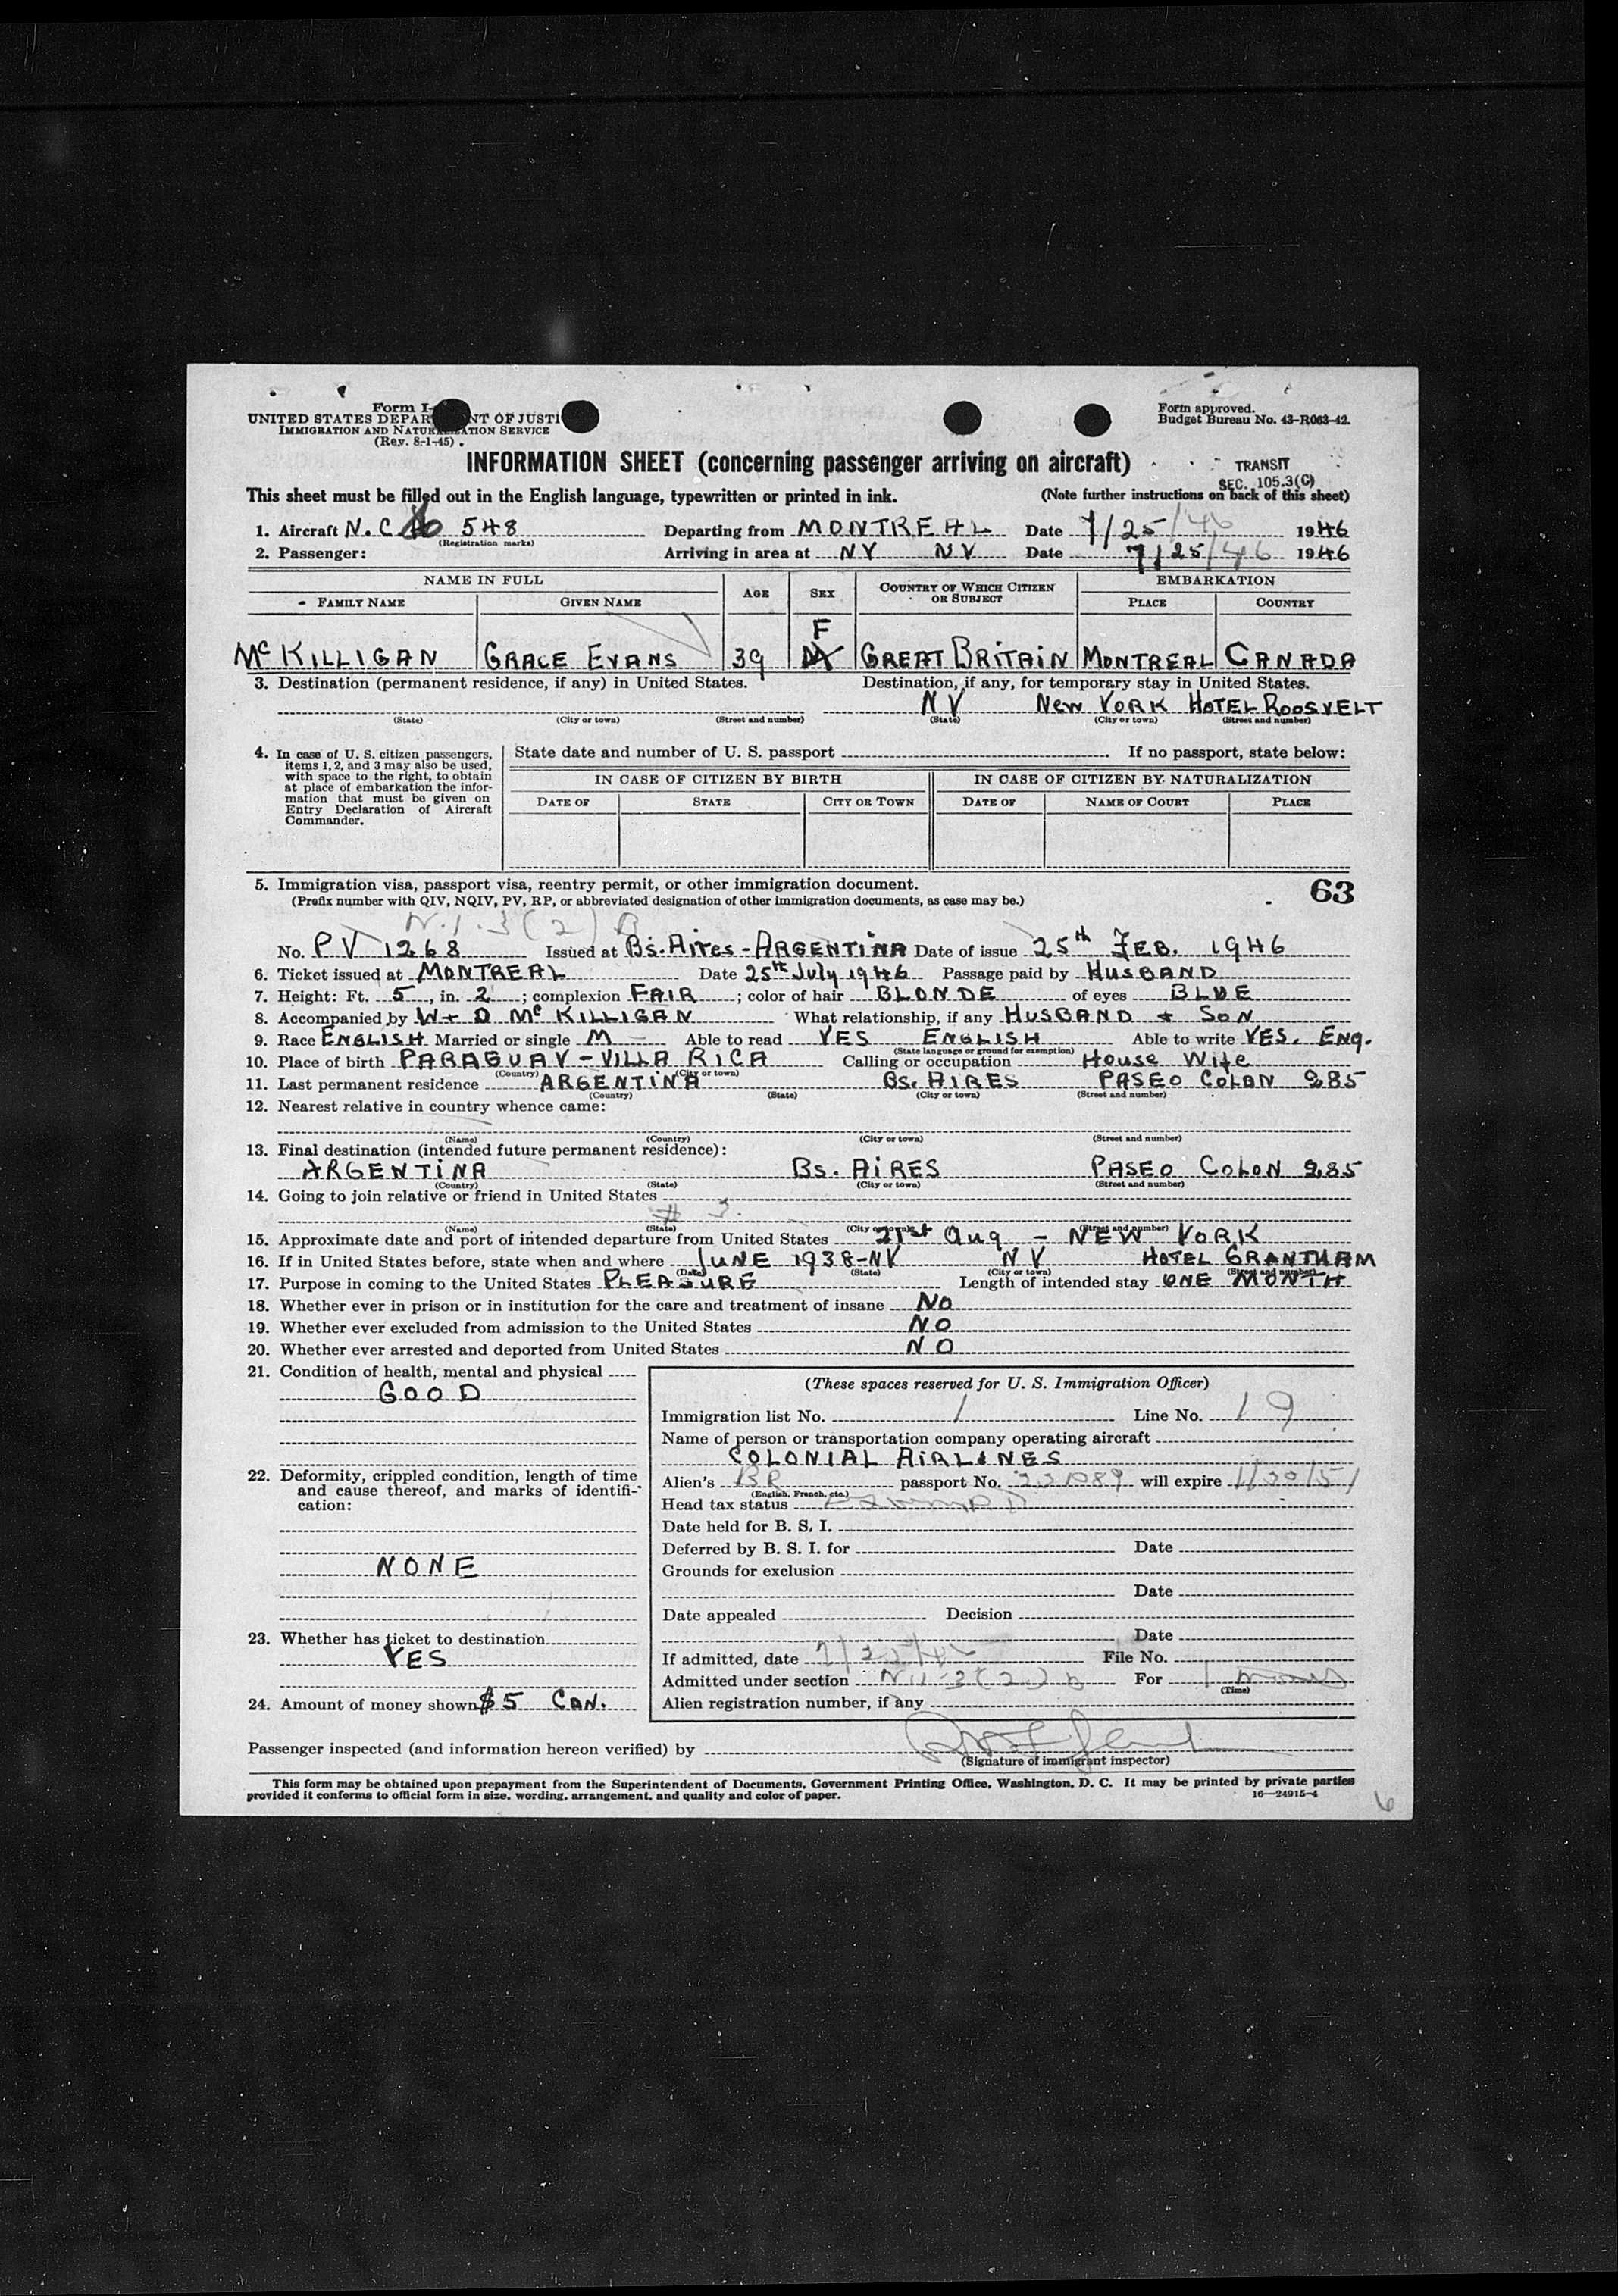 Form I-
UNITED STATES DEPAR NT OF JUSTI
IMMIGRATION AND NATURALIZATION SERVICE
(Rev. 8-1-45)
Form approved.
Budget Bureau No. 43-R063-42.
INFORMATION SHEET (concerning passenger arriving on aircraft)
TRANSIT
SEC. 105.3(C)
This sheet must be filled out in the English language, typewritten or printed in ink. (Note further instructions on back of this sheet)
1. Aircraft N.C. 548 Departing from MONTREAL Date 7/25/46 1946
(Registration marks)
2. Passenger: Arriving in area at NY NY Date 7/25/46 1946
NAME IN FULL AGE SEX COUNTRY OF WHICH CITIZEN OR SUBJECT EMBARKATION
FAMILY NAME GIVEN NAME PLACE COUNTRY
F
Mc KILLIGAN GRACE EVANS 39 M GREAT BRITAIN MONTREAL CANADA
3. Destination (permanent residence, if any) in United States. Destination, if any, for temporary stay in United States.
NY New York HOTEL ROOSVELT
(State) (City or town) (Street and number) (State) (City or town) (Street and number)
4. In case of U. S. citizen passengers, items 1, 2, and 3 may also be used, with space to the right, to obtain at place of embarkation the information that must be given on Entry Declaration of Aircraft Commander.
State date and number of U. S. passport If no passport, state below:
IN CASE OF CITIZEN BY BIRTH IN CASE OF CITIZEN BY NATURALIZATION
DATE OF STATE CITY OR TOWN DATE OF NAME OF COURT PLACE
5. Immigration visa, passport visa, reentry permit, or other immigration document. 63
(Prefix number with QIV, NQIV, PV, RP, or abbreviated designation of other immigration documents, as case may be.)
N.I. 3(2) B
No. PV 1268 Issued at Bs. Aires - ARGENTINA Date of issue 25th FEB. 1946
6. Ticket issued at MONTREAL Date 25th July 1946 Passage paid by HUSBAND
7. Height: Ft. 5, in. 2; complexion FAIR; color of hair BLONDE of eyes BLUE
8. Accompanied by W + D Mc KILLIGAN What relationship, if any HUSBAND + SON
9. Race ENGLISH Married or single M Able to read YES ENGLISH Able to write YES. Eng.
(State language or ground for exemption)
10. Place of birth PARAGUAY - VILLA RICA Calling or occupation House Wife
(Country) (City or town)
11. Last permanent residence ARGENTINA Bs. AIRES PASEO COLON 285
(Country) (State) (City or town) (Street and number)
12. Nearest relative in country whence came:
(Name) (Country) (City or town) (Street and number)
13. Final destination (intended future permanent residence):
ARGENTINA Bs. AIRES PASEO COLON 285
(Country) (State) (City or town) (Street and number)
14. Going to join relative or friend in United States
# 3.
(Name) (State) (City or town) (Street and number)
15. Approximate date and port of intended departure from United States 21st Aug - NEW YORK
16. If in United States before, state when and where JUNE 1938 - NY NY HOTEL GRANTHAM
(Date) (State) (City or town) (Street and number)
17. Purpose in coming to the United States PLEASURE Length of intended stay ONE MONTH
18. Whether ever in prison or in institution for the care and treatment of insane NO
19. Whether ever excluded from admission to the United States NO
20. Whether ever arrested and deported from United States NO
21. Condition of health, mental and physical
GOOD
22. Deformity, crippled condition, length of time and cause thereof, and marks of identification:
NONE
23. Whether has ticket to destination
YES
24. Amount of money shown $5 CAN.
(These spaces reserved for U. S. Immigration Officer)
Immigration list No. 1 Line No. 19
Name of person or transportation company operating aircraft
COLONIAL AIRLINES
Alien's BR passport No. 221089 will expire 1/30/51
(English, French, etc.)
Head tax status
Date held for B. S. I.
Deferred by B. S. I. for Date
Grounds for exclusion
Date
Date appealed Decision
Date
If admitted, date 7/25/46 File No.
Admitted under section N.I-3(2) b For 1
(Time)
Alien registration number, if any
Passenger inspected (and information hereon verified) by
(Signature of immigrant inspector)
This form may be obtained upon prepayment from the Superintendent of Documents, Government Printing Office, Washington, D. C. It may be printed by private parties
provided it conforms to official form in size, wording, arrangement, and quality and color of paper. 16—24915-4
6